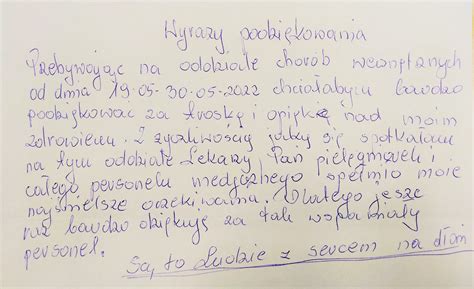 Wyrazy podziękowania
Przebywając na oddziale chorób wewnętrznych
od dnia 19.05-30.05.2022 chciałabym bardzo
podziękować za troskę i opiekę nad moim
zdrowiem. Z życzliwością jaką się spotkałam
na tym oddziale Lekarzy, Pań pielęgniarek i
całego personelu medycznego spełnio moje
najśmielsze oczekiwania. Dlatego jeszcze
raz bardzo dziękuję za tak wspaniały
personel.
Są to Ludzie z sercem na dłoni